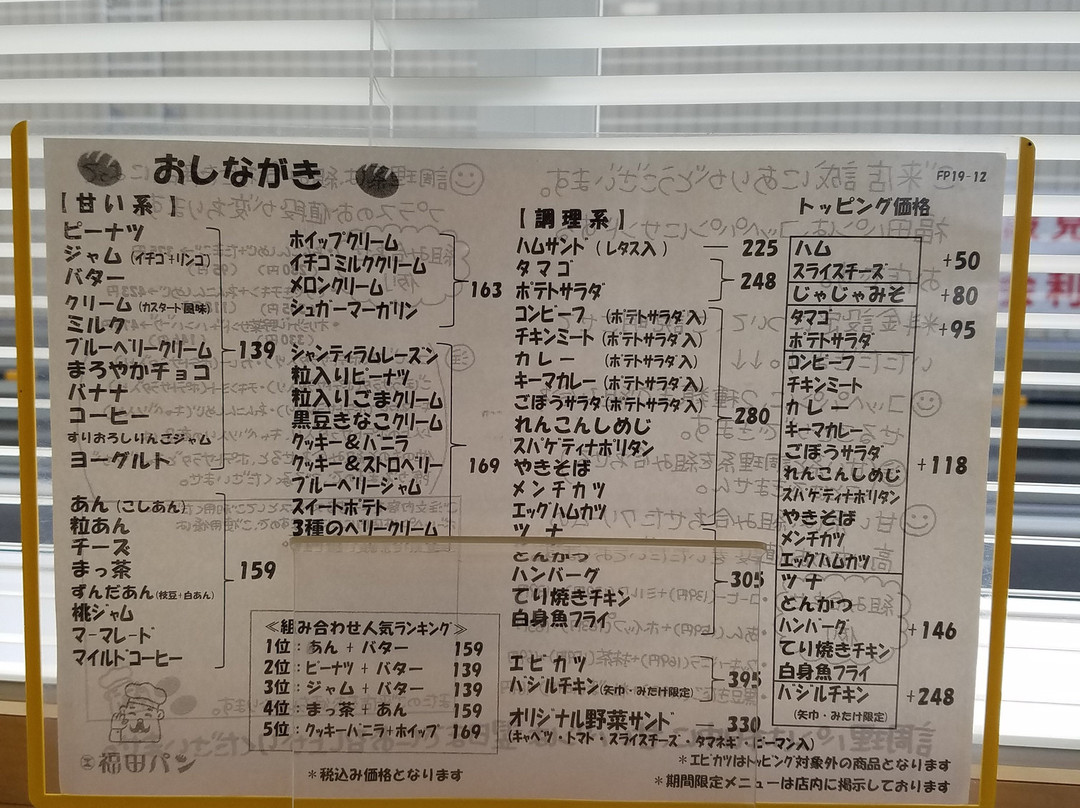 おしながき
FP19-12
【甘い系】
ピーナツ
ジャム (イチゴ+リンゴ)
バター
クリーム (カスタード風味)
ミルク
ブルーベリークリーム
まろやかチョコ
バナナ
コーヒー
すりおろしりんごジャム
ヨーグルト
139
あん (こしあん)
粒あん
チーズ
まっ茶
ずんだあん (枝豆+白あん)
桃ジャム
マーマレード
マイルドコーヒー
159
ホイップクリーム
イチゴミルククリーム
メロンクリーム
シュガーマーガリン
163
シャンティラムレーズン
粒入りピーナツ
粒入りごまクリーム
黒豆きなこクリーム
クッキー&バニラ
クッキー&ストロベリー
ブルーベリージャム
スイートポテト
3種のベリークリーム
169
≪組み合わせ人気ランキング≫
1位:あん + バター 159
2位:ピーナツ + バター 139
3位:ジャム + バター 139
4位:まっ茶 + あん 159
5位:クッキーバニラ+ホイップ 169
【調理系】
ハムサンド (レタス入) 225
タマゴ
ポテトサラダ
248
コンビーフ (ポテトサラダ入)
チキンミート (ポテトサラダ入)
カレー (ポテトサラダ入)
キーマカレー (ポテトサラダ入)
ごぼうサラダ (ポテトサラダ入)
れんこんしめじ
スパゲティナポリタン
やきそば
メンチカツ
エッグハムカツ
280
ツナ
とんかつ
ハンバーグ
てり焼きチキン
白身魚フライ
305
エビカツ
バジルチキン (矢巾・みたけ限定)
395
オリジナル野菜サンド 330
(キャベツ・トマト・スライスチーズ・タマネギ・ピーマン入)
トッピング価格
ハム
スライスチーズ
+50
じゃじゃみそ +80
タマゴ
ポテトサラダ
+95
コンビーフ
チキンミート
カレー
キーマカレー
ごぼうサラダ
れんこんしめじ
スパゲティナポリタン
やきそば
メンチカツ
エッグハムカツ
+118
ツナ
とんかつ
ハンバーグ
てり焼きチキン
白身魚フライ
+146
バジルチキン
(矢巾・みたけ限定)
+248
福田パン
*税込み価格となります
*エビカツはトッピング対象外の商品となります
*期間限定メニューは店内に掲示しております